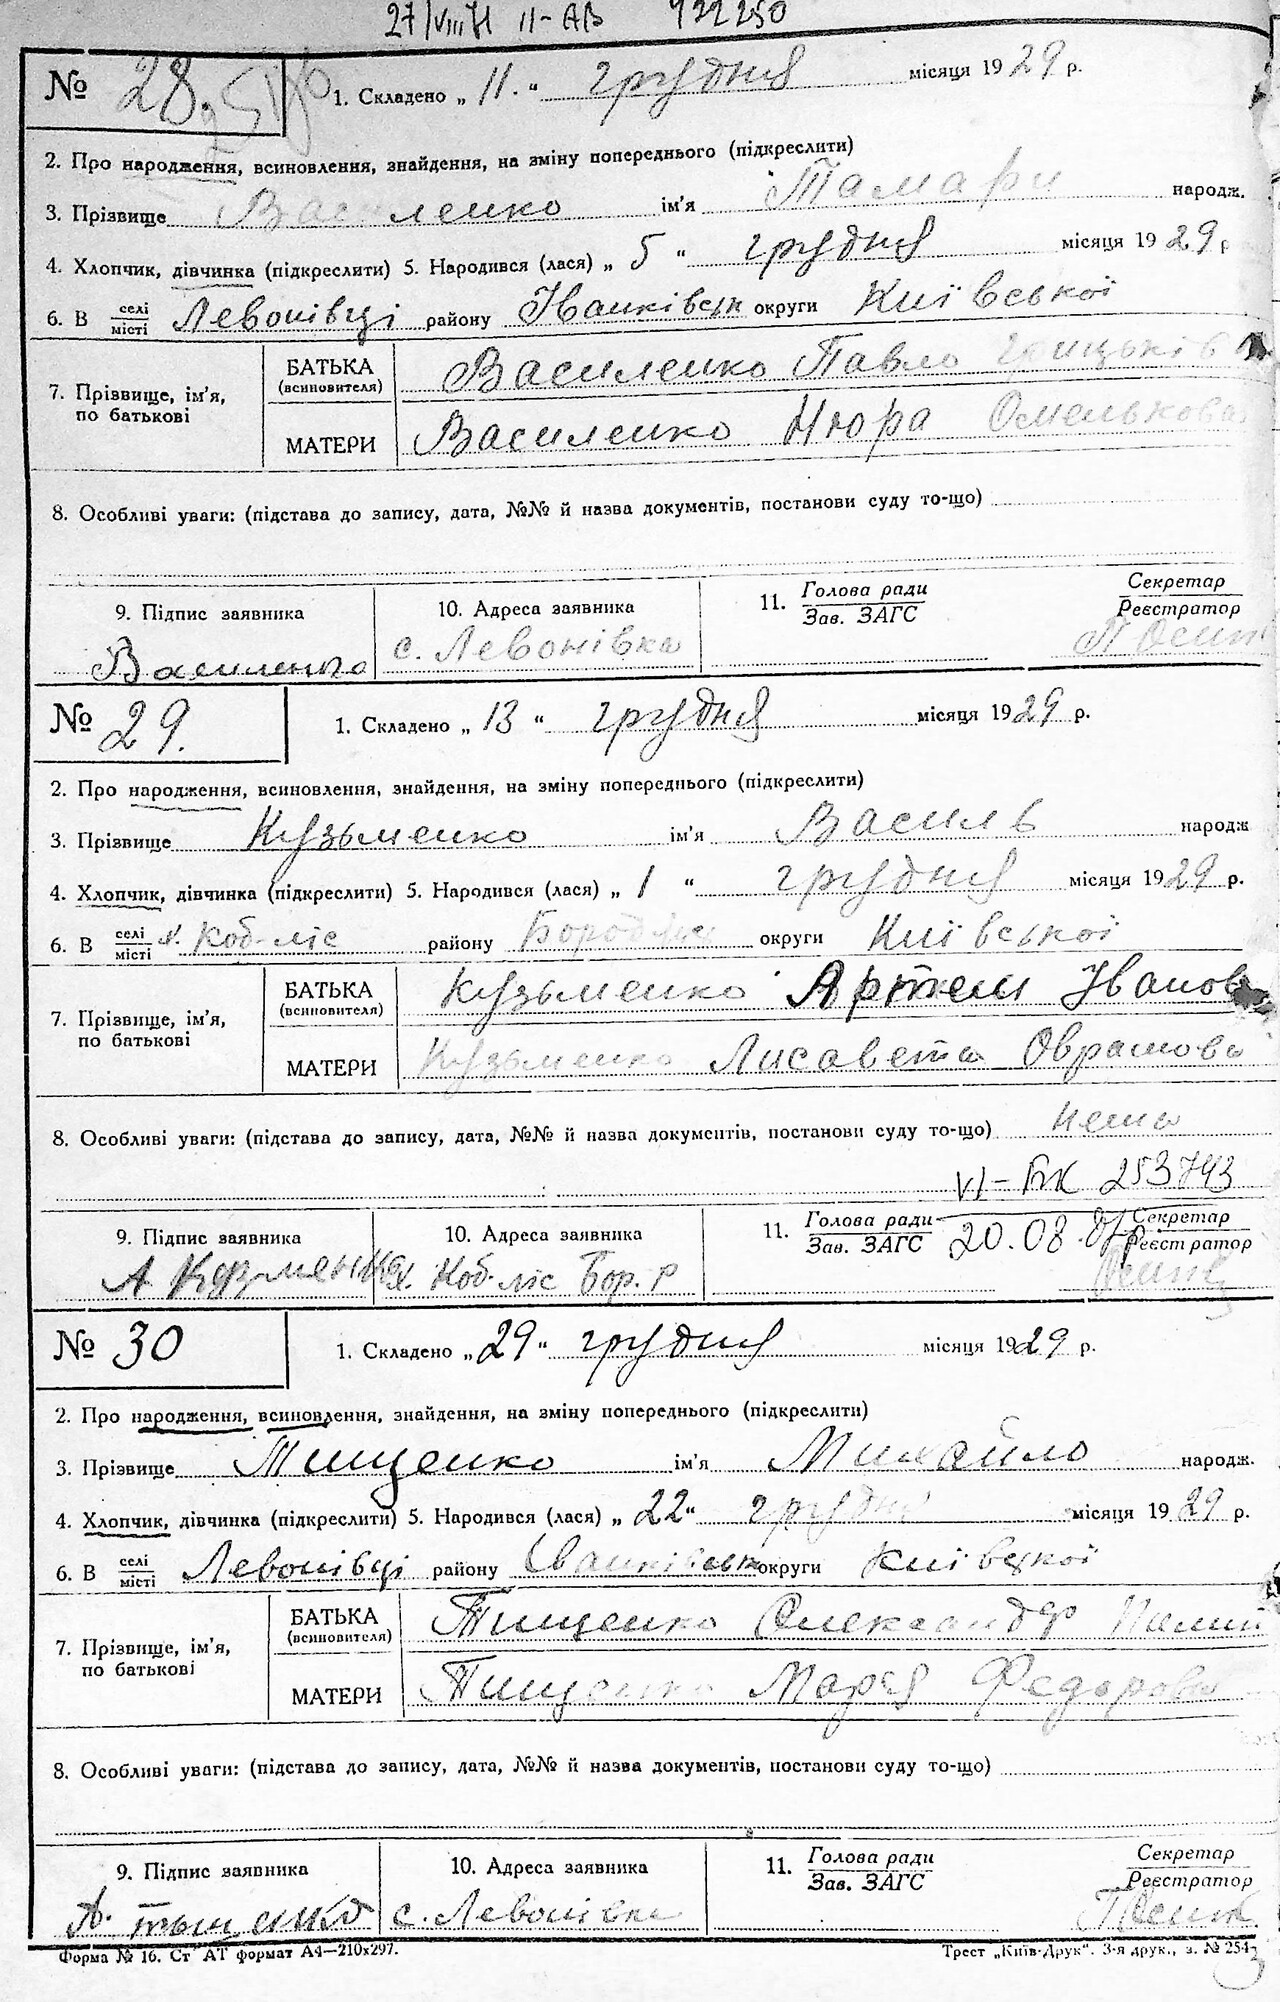 27/VIII 71 II-АВ 422250
№ 28. 1. Складено „ 11. “ грудня місяця 1929 р.
2. Про народження, всиновлення, знайдення, на зміну попереднього (підкреслити)
3. Прізвище Василенко ім’я Тамари народж.
4. Хлопчик, дівчинка (підкреслити) 5. Народився (лася) „ 5 “ грудня місяця 1929 р
6. В селі Левонівці району Іванківськ округи Київської
місті
7. Прізвище, ім’я, по батькові
БАТЬКА (всиновителя) Василенко Павло Грицьків
МАТЕРИ Василенко Нюра Омелькова
8. Особливі уваги: (підстава до запису, дата, №№ й назва документів, постанови суду то-що)
9. Підпис заявника 10. Адреса заявника 11. Голова ради Секретар
Зав. ЗАГС Реєстратор
Василенко с. Левонівка
№ 29. 1. Складено „ 13 “ грудня місяця 1929 р.
2. Про народження, всиновлення, знайдення, на зміну попереднього (підкреслити)
3. Прізвище Кузьменко ім’я Василь народж
4. Хлопчик, дівчинка (підкреслити) 5. Народився (лася) „ 1 “ грудня місяця 1929 р.
6. В селі х. Коб-ліс району округи Київської
місті
7. Прізвище, ім’я, по батькові
БАТЬКА (всиновителя) Кузьменко Артем Іванов
МАТЕРИ Кузьменко Лисавета Оврамова
8. Особливі уваги: (підстава до запису, дата, №№ й назва документів, постанови суду то-що) нема
VI-БК 253743
9. Підпис заявника 10. Адреса заявника 11. Голова ради Секретар
Зав. ЗАГС 20.08. Реєстратор
А. Кузменко х. Коб-ліс Бор. Р
№ 30 1. Складено „ 29 “ грудня місяця 1929 р.
2. Про народження, всиновлення, знайдення, на зміну попереднього (підкреслити)
3. Прізвище Тищенко ім’я Михайло народж.
4. Хлопчик, дівчинка (підкреслити) 5. Народився (лася) „ 22 “ грудня місяця 1929 р.
6. В селі Левонівці району Іванківськ округи Київської
місті
7. Прізвище, ім’я, по батькові
БАТЬКА (всиновителя) Тищенко Олександр
МАТЕРИ Тищенко Марія Федорова
8. Особливі уваги: (підстава до запису, дата, №№ й назва документів, постанови суду то-що)
9. Підпис заявника 10. Адреса заявника 11. Голова ради Секретар
Зав. ЗАГС Реєстратор
А. тыщенко с. Левонівка
Форма № 16. Ст АТ формат А4—210х297. Трест „Київ-Друк“. 3-я друк., з. № 254